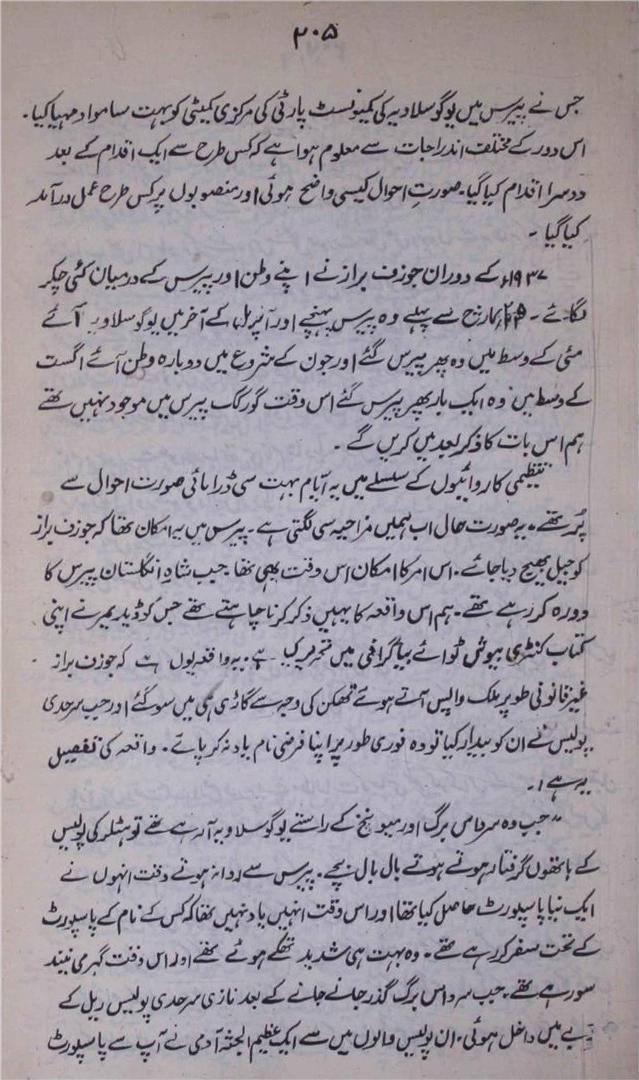 ۲۰۵
جس نے پیرس میں یوگوسلاویہ کی کمیونسٹ پارٹی کی مرکزی کمیٹی کو بہت سا مواد مہیا کیا۔
اس دور کے مختلف اندراجات سے معلوم ہوا ہے کہ کس طرح سے ایک اقدام کے بعد
دوسرا اقدام کیا گیا۔ صورتِ احوال کیسی واضح ہوئی اور منصوبوں پر کس طرح عمل درآمد
کیا گیا۔
۱۹۳۷ء کے دوران جوزف براز نے اپنے وطن اور پیرس کے درمیان کئی چکر
لگائے۔ مارچ سے پہلے وہ پیرس پہنچے اور اپریل کے آخر میں یوگوسلاویہ آئے
مئی کے وسط میں وہ پھر پیرس گئے اور جون کے شروع میں دوبارہ وطن آئے اگست
کے وسط میں وہ ایک بار پھر پیرس گئے اس وقت گورکک پیرس میں موجود نہیں تھے
ہم اس بات کا ذکر بعد میں کریں گے۔
تنظیمی کاروائیوں کے سلسلے میں یہ ایام بہت سی ڈرامائی صورت احوال سے
پُر تھے۔ یہ صورت حال اب ہمیں مزاحیہ سی لگتی ہے۔ پیرس میں یہ امکان تھا کہ جوزف براز
کو جیل بھیج دیا جائے۔ اس امر کا امکان اس وقت بھی تھا۔ جب شاہ انگلستان پیرس کا
دورہ کر رہے تھے۔ ہم اس واقعہ کا یہیں ذکر کرنا چاہتے تھے جس کو ڈیدیر نے اپنی
کتاب کنٹری بیوشن ٹو اے بیاگرافی میں تحریر کیا ہے۔ یہ واقعہ یوں ہے کہ جوزف براز
غیر قانونی طور پر ملک واپس آتے ہوئے تھکن کی وجہ سے گاڑی ہی میں سو گئے اور جب سرحدی
پولیس نے ان کو بیدار کیا تو وہ فوری طور پر اپنا فرضی نام یاد نہ کر پائے۔ واقعہ کی تفصیل
یہ ہے :۔
"جب وہ سرداس برگ اور میونخ کے راستے یوگوسلاویہ آ رہے تھے تو ہٹلر کی پولیس
کے ہاتھوں گرفتار ہوتے ہوتے بال بال بچے۔ پیرس سے روانہ ہوتے وقت انہوں نے
ایک نیا پاسپورٹ حاصل کیا تھا اور اس وقت انہیں یاد نہیں تھا کہ کس کے نام کے پاسپورٹ
کے تحت سفر کر رہے تھے۔ وہ بہت ہی شدید تھکے ہوئے تھے اور اس وقت گہری نیند
سو رہے تھے۔ جب سرداس برگ گذر جانے جانے کے بعد نازی سرحدی پولیس ریل کے
ڈبے میں داخل ہوئی۔ ان پولیس والوں میں سے ایک عظیم الجثہ آدمی نے آپ سے پاسپورٹ